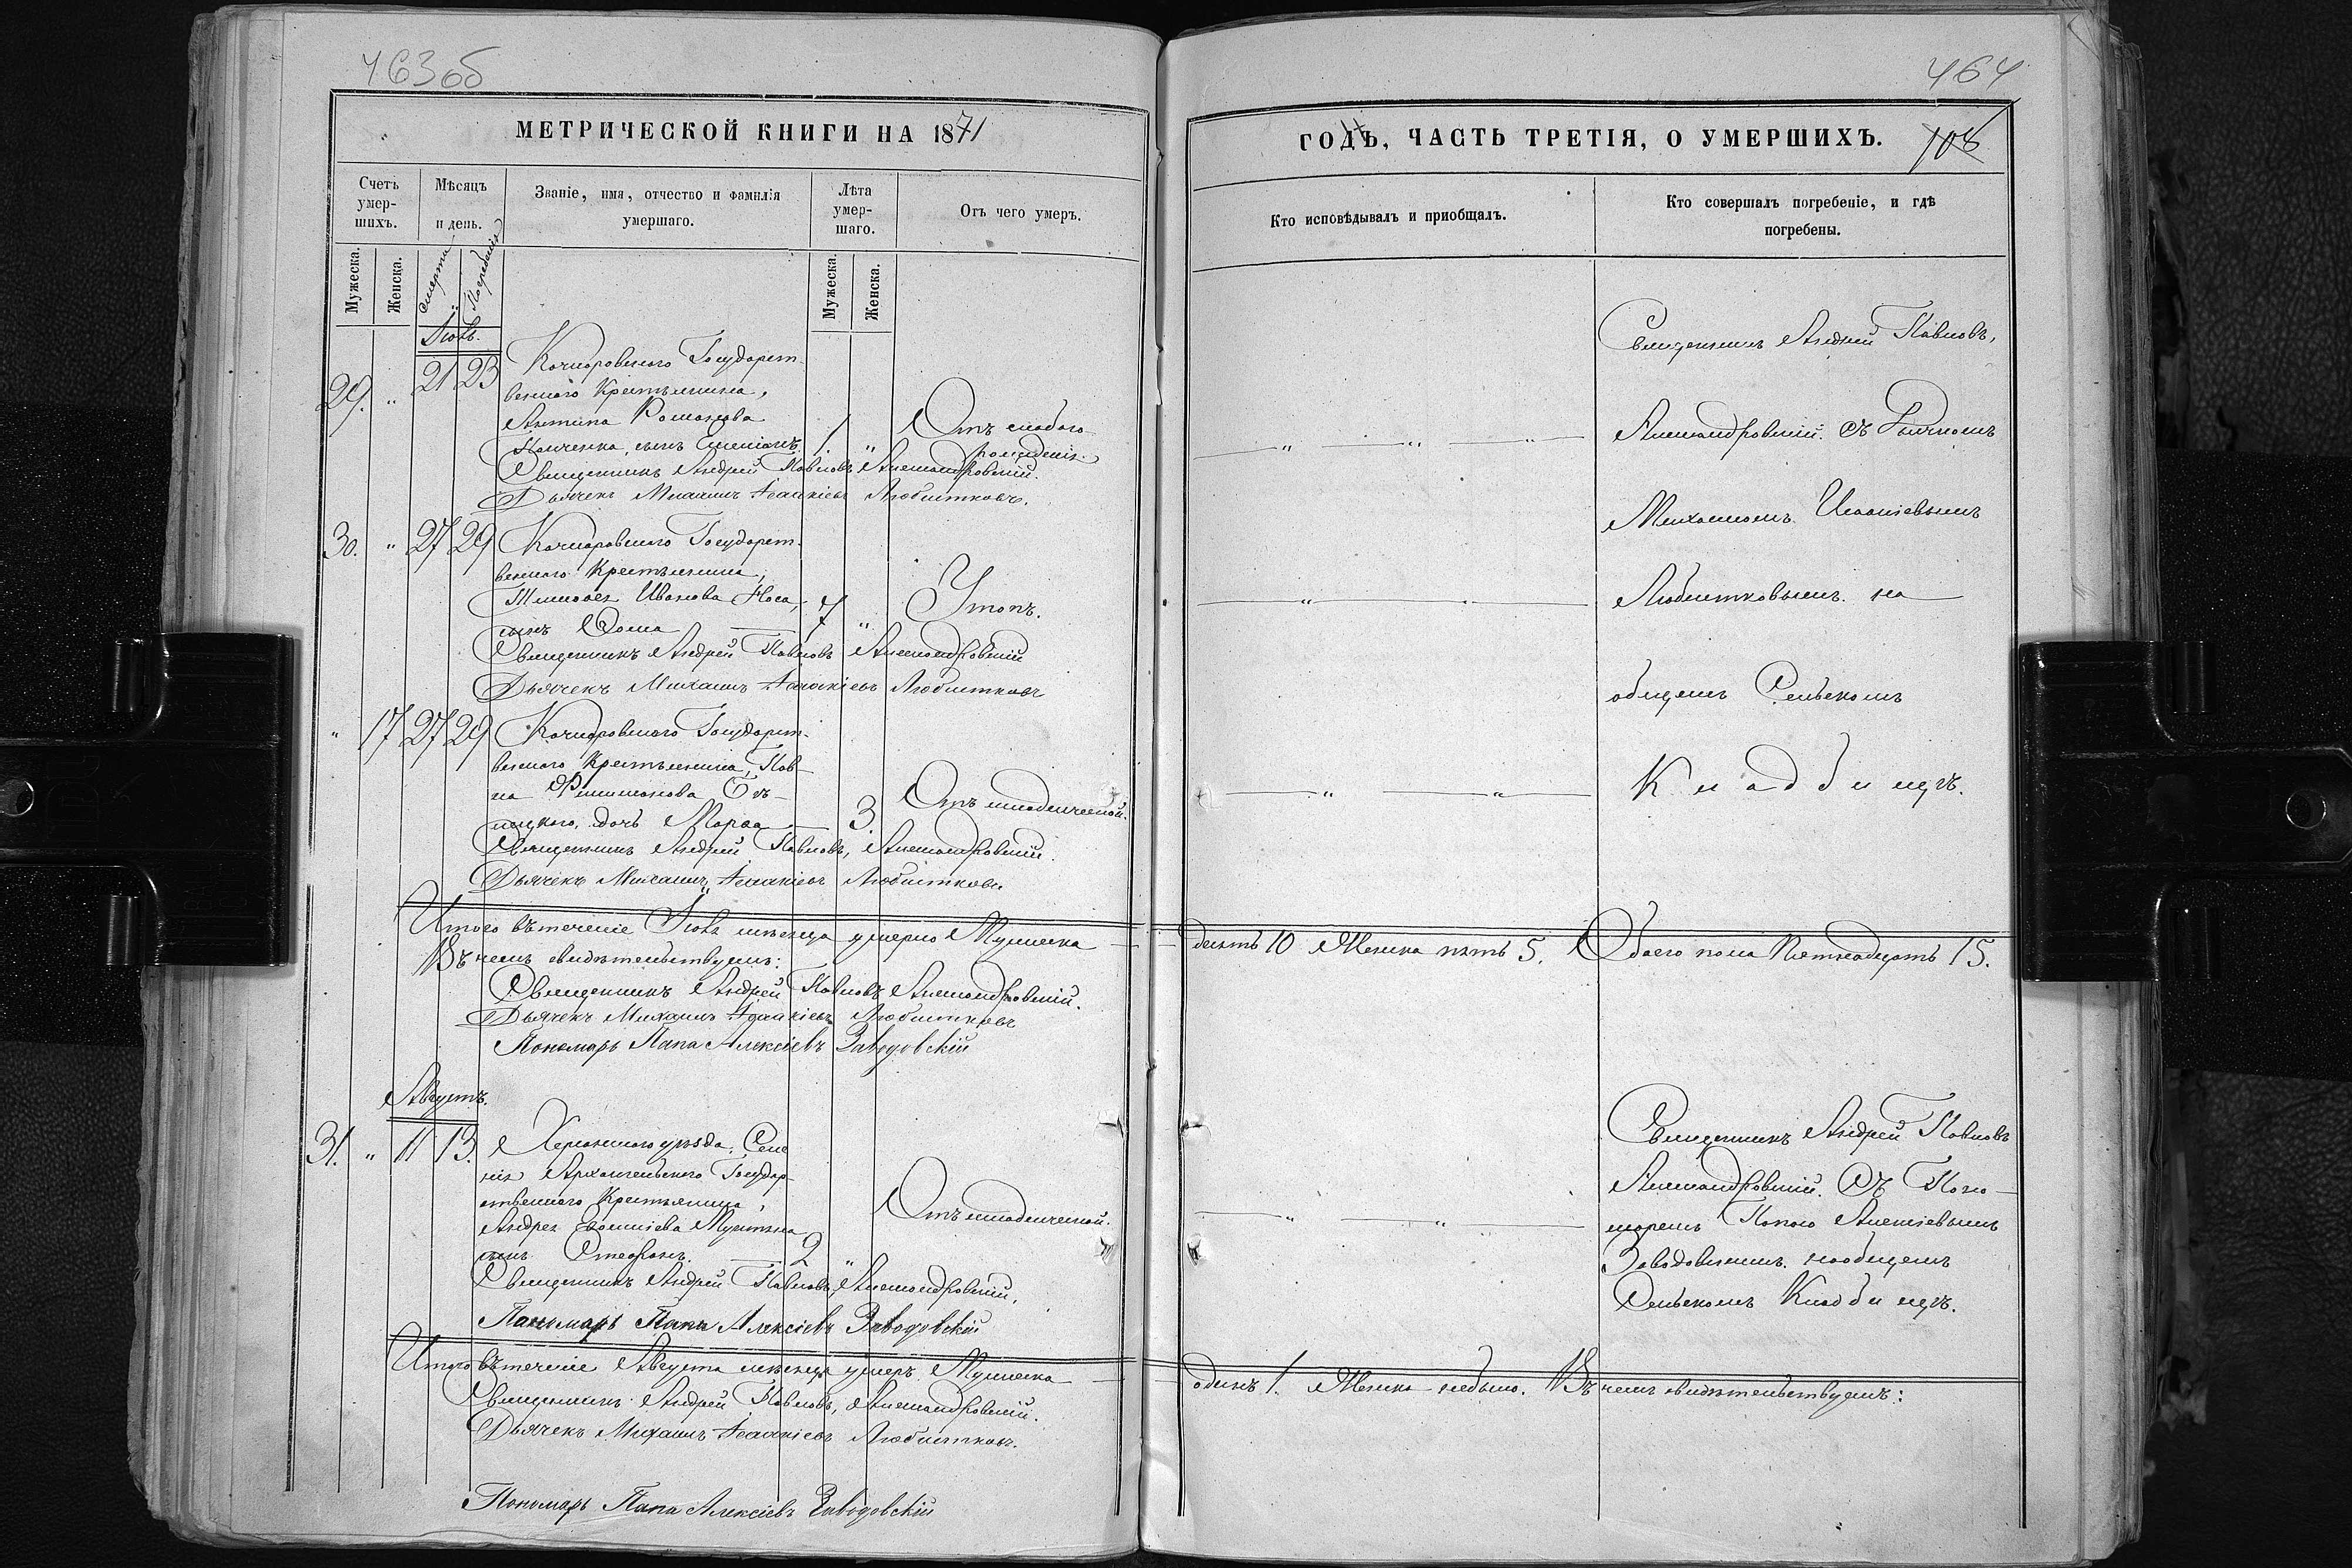 463об
МЕТРИЧЕСКОЙ КНИГИ НА 1871
Счетъ умер-шихъ.
Мѣсяцъ и день.
Званіе, имя, отчество и фамилія умершаго.
Лѣта умер-шаго.
Отъ чего умеръ.
Мужеска.
Женска.
Смерти
Погребенія
Мужеска.
Женска.
Іюль.
29. " 21 23 Качкаровскаго Государст-
веннаго Крестьянина,
Антипа Романова
сынъ 1. " Отъ слабаго рожденія.
Священникъ Андрей Павловъ Александровскій.
Дьячекъ Михаилъ Исаакіевъ Любитковъ.
30. " 27 29 Качкаровскаго Государст-
веннаго Крестьянина,
Тимофея Иванова Носа,
сынъ Ѳома 7 " Утопъ.
Священникъ Андрей Павловъ Александровскій
Дьячекъ Михаилъ Исаакіевъ Любитковъ
" 17 27 29 Качкаровскаго Государст-
веннаго Крестьянина, Пав-
ла Филимонова Бѣ-
лецкого, дочь Марѳа 3. Отъ младенческой.
Священникъ Андрей Павловъ, Александровскій.
Дьячекъ Михаилъ Исаакіевъ Любитковъ
Итого въ теченіе Іюля мѣсяца умерло Мужеска
Въ чемъ свидѣтельствуемъ:
Священникъ Андрей Павловъ Александровскій.
Дьячекъ Михаилъ Исаакіевъ Любитковъ
Пономарь Папа Алексіевъ Заводовскій
Августъ.
31. " 11 13. Херсонскаго уѣзда, Селе-
нія Архангельскаго Государ-
ственнаго Крестьянина,
Андрея
сынъ Стефанъ. 2 " Отъ младенческой.
Священникъ Андрей Павловъ, Александровскій,
Пономарь Папа Алексіевъ Заводовскій
Итого въ теченіе Августа мѣсяца умеръ Мужеска
Священникъ Андрей Павловъ, Александровскій.
Дьячекъ Михаилъ Исаакіевъ Любитковъ.
Пономарь Папа Алексіевъ Заводовскій
464
ГОДЪ, ЧАСТЬ ТРЕТІЯ, О УМЕРШИХЪ.
108
Кто исповѣдывалъ и приобщалъ.
Кто совершалъ погребеніе, и гдѣ погребены.
Священникъ Андрей Павловъ,
Александровскій. Съ Дьячкомъ
Михаиломъ Исаакіевымъ
Любитковымъ. на
общемъ Сельскомъ
Кладбищѣ.
десять 10 Женска пять 5. Обоего пола Пятнадцать 15.
Священникъ Андрей Павловъ
Александровскій. Съ Поно-
маремъ Папою Алексіевымъ
Заводовскимъ. на общемъ
Сельскомъ Кладбищѣ.
одинъ 1. Женска небыло. Въ чемъ свидѣтельствуемъ: